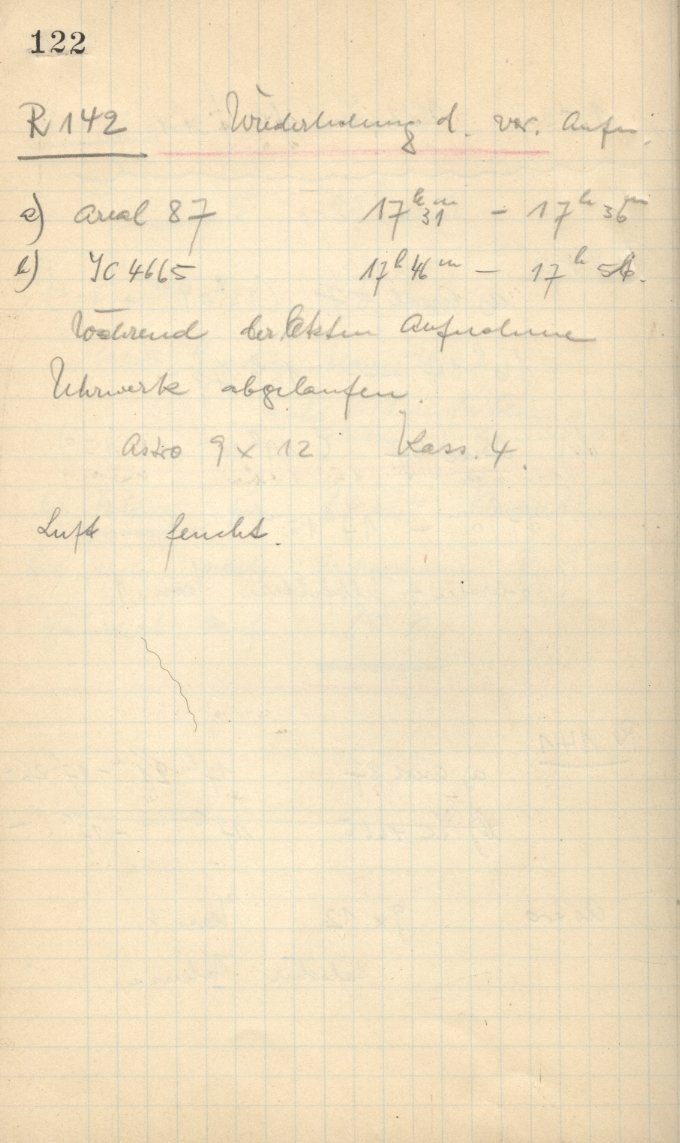 122
R 142 Wiederholung d. vor. Aufn.
a) Areal 87 17h 31m - 17h 36m
b) IC 4665 17h 46m - 17h
Während der letzten Aufnahme
Uhrwerk abgelaufen.
Astro 9 x 12 Kass. 4.
Luft feucht.